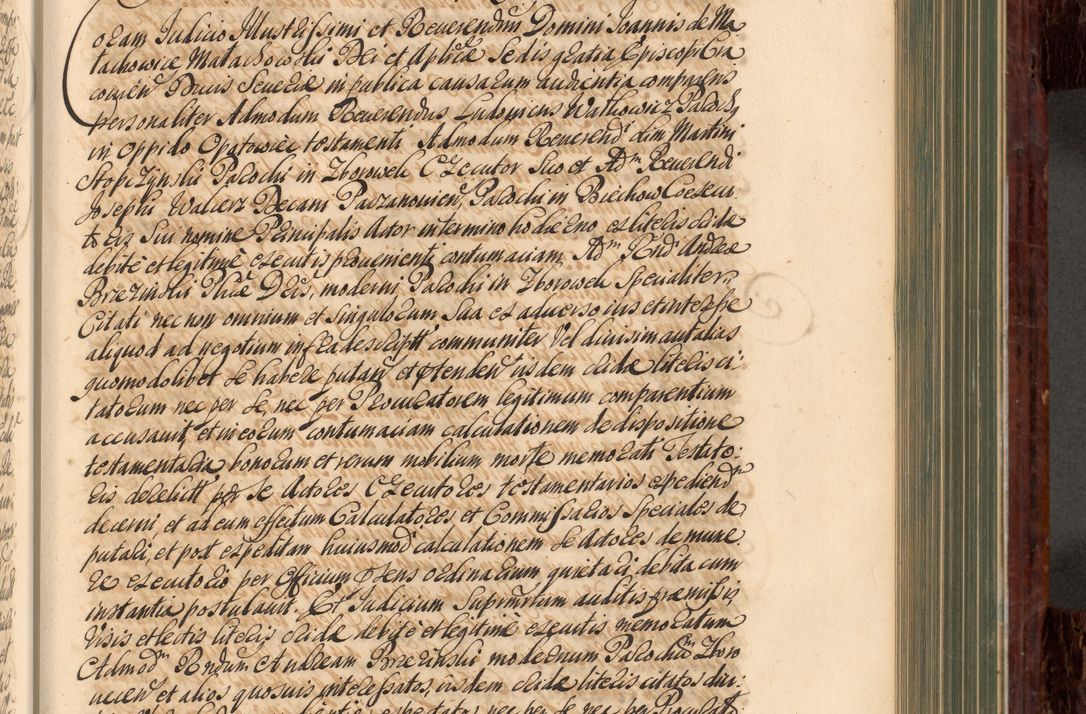 Coram Iudicio Illustrissimi et Reverendissimi Domini Ioannis de Ma
łachowice Małachowski Dei et Aplicæ Sedis gratia Episcopi Cra
covien Ducis Severiæ in publica causarum audientia comparens
personaliter Admodum Reverendus Ludovicus Watkowicz Paroch
in Oppido Opatowiec testamenti Admodum Reverend olim Martini
Stopczynski Parochi in Zborowek Executor Suo et Adm Reverendi
Josephi Walierz Decani Pacanovien Parochi in Biechow Coexecu
toris Sui nomine Principalis Actor in termino hodierno ex literis cridæ
debitè et legitimè executis proveniente contumaciam Adm Rndi Andreæ
Brzezinski Phiæ Dris, moderni Parochi in Zborowek Specialiter
Citati nec non omnium et singulorum Sua ex adverso ius et interesse
aliquod ad negotium infrascriptt communiter vel divisim aut alias
quomodolibet se habere putan et prtenden iisdem cridæ literis ci
tatorum nec per se, nec per Procuratorem legitimum comparentium
accusavit, et in eorum contumaciam calculationem de dispositione
testamentaria bonorum et rerum mobilium morte memorati Testato:
ris derelictt per se Actores Executores testamentarios expediend
decerni, et ad eum effectum Calculatores et Commissarios Speciales de
putari, et post expeditam huiusmodi calculationem se Actores de mune
re executorio per Officium prsens ordinarium quietari, debita cum
instantia postulavit. Et Iudicium Suprmtum auditis præmissis,
visis et lectis literis cridæ debitè et legitimè executis memoratum
Admod Rndum Andream Brzezinski modernum Parochum Zboro
vecen et alios quosvis interessatos, iisdem cridæ literis citatos diu:
expectatos nec per se nec per Procurat